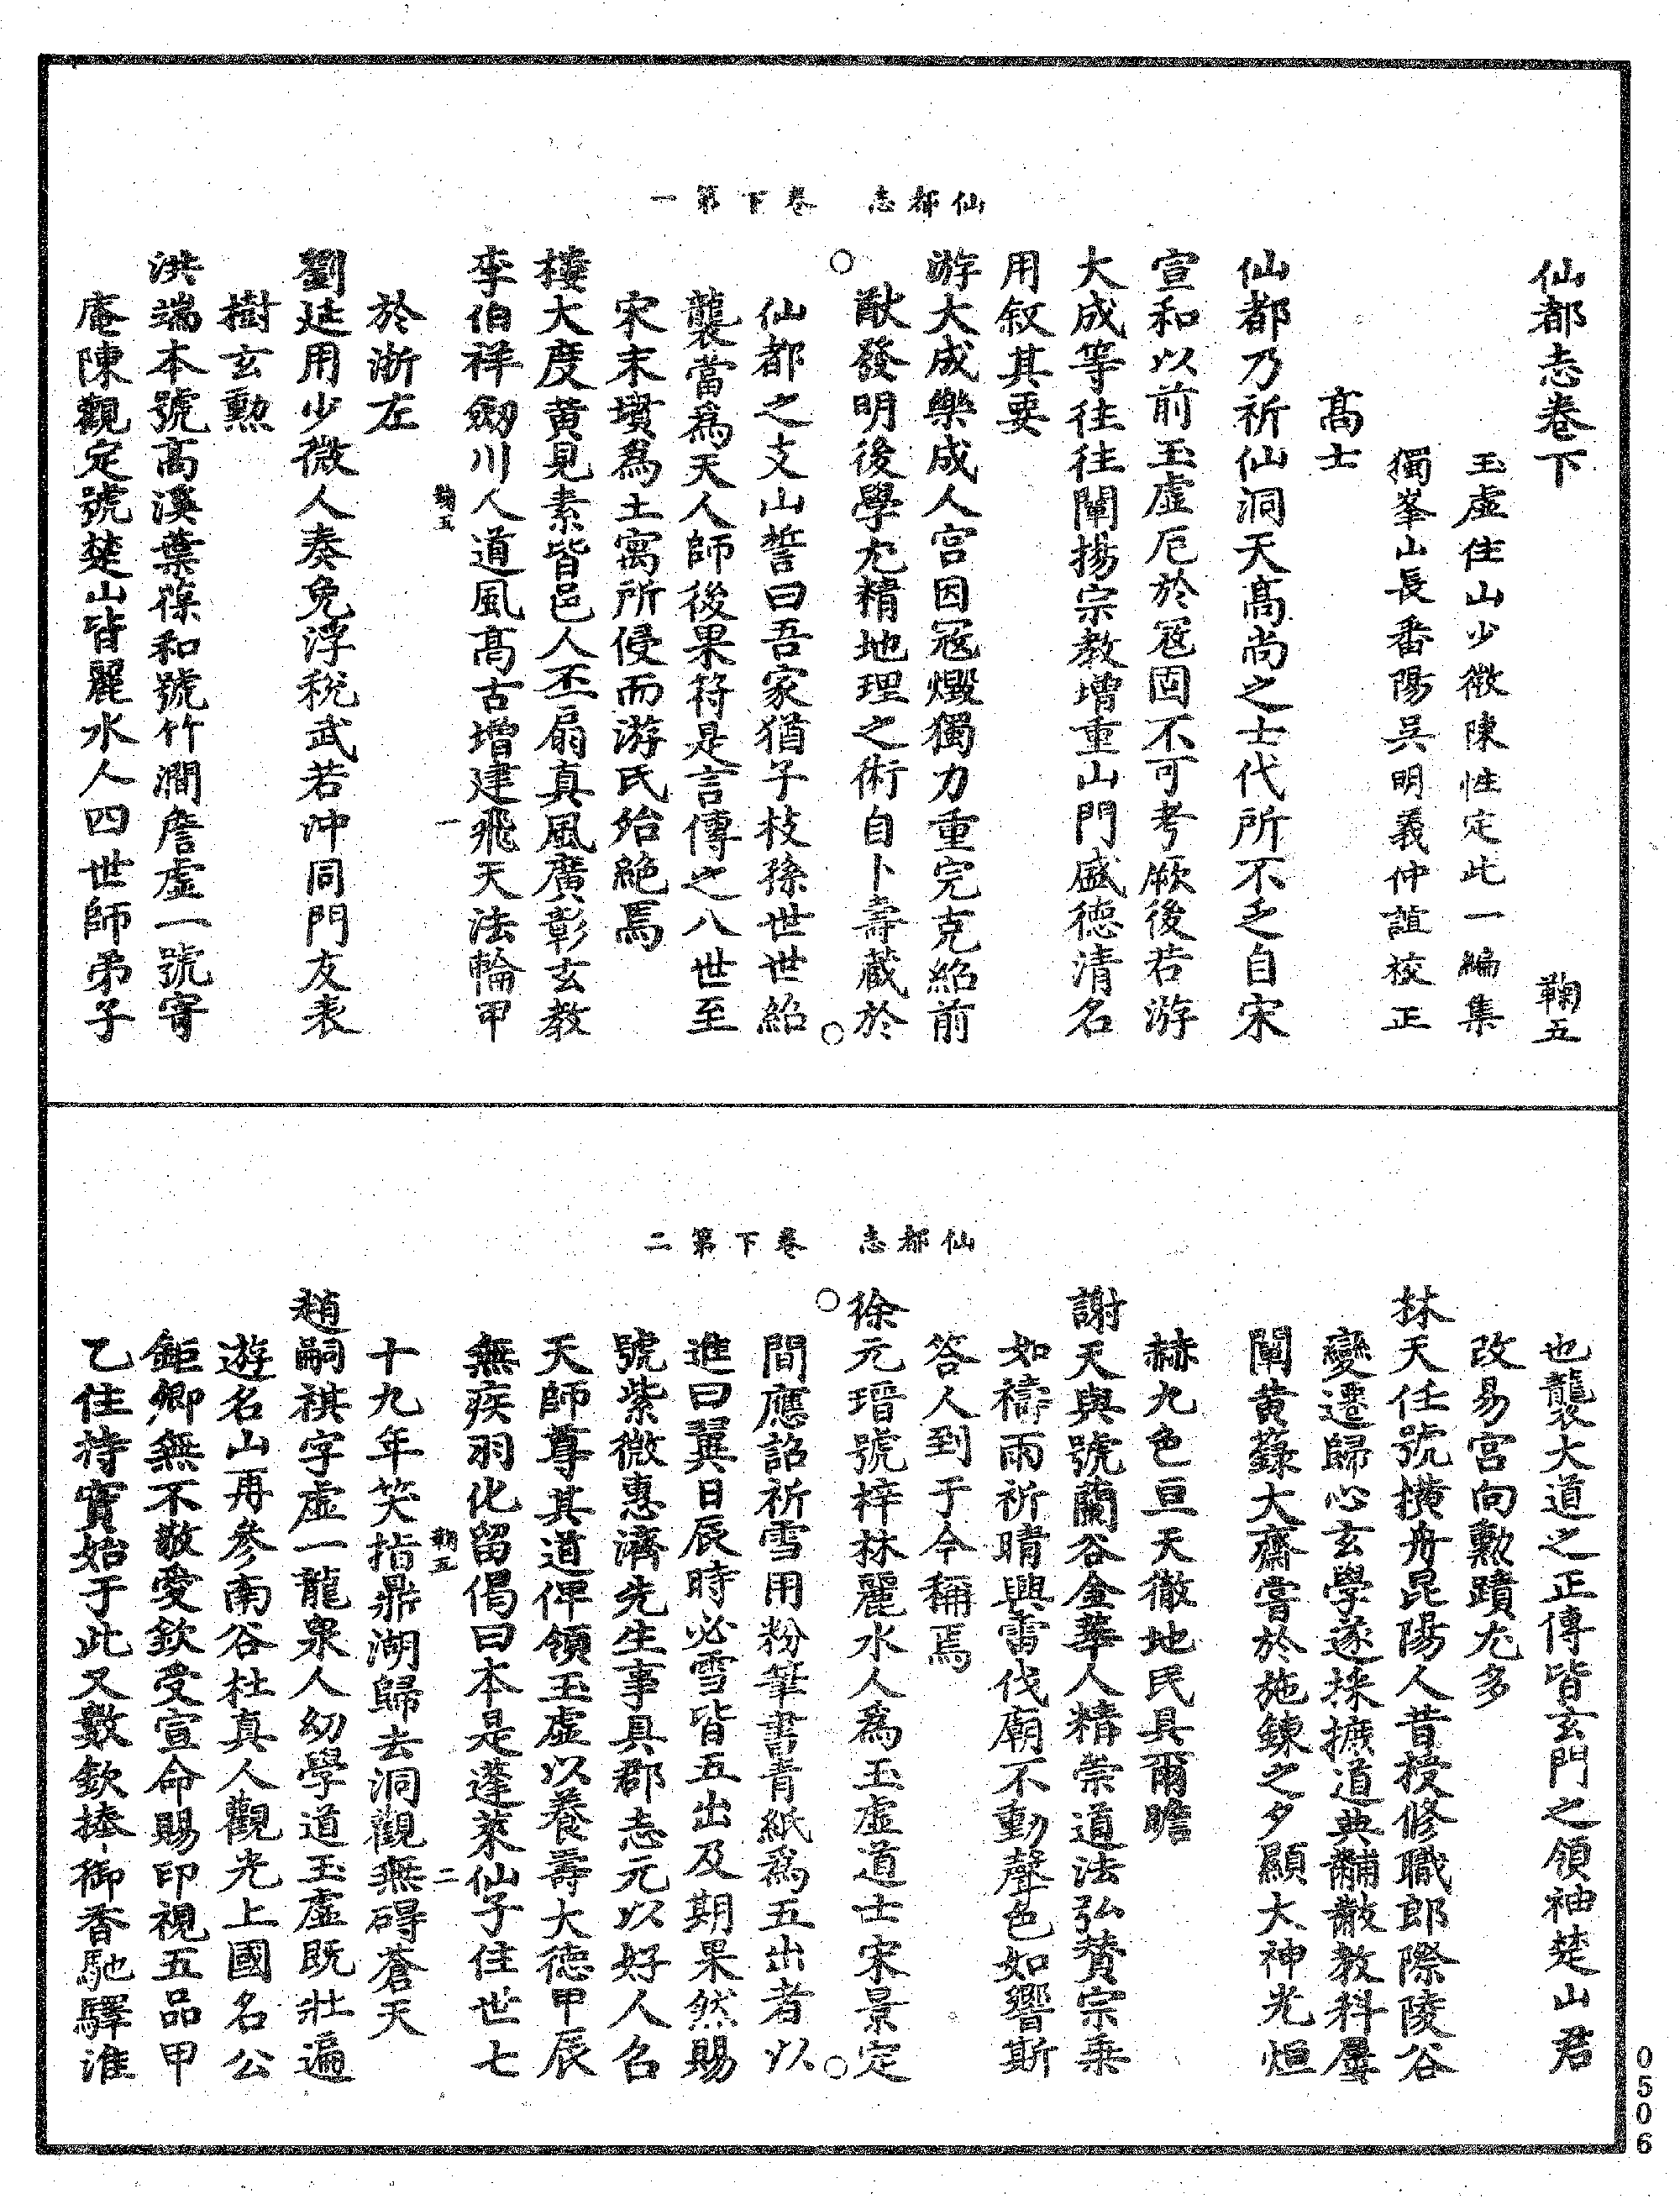 仙都志卷下第一
仙都志卷下　鞠五
玉虛住山少微陳性定此一編集
獨峯山長番陽吳明義仲誼校正
高士
仙都乃祈仙洞天高尚之士代所不乏自宋
宣和以前玉虛厄於寇固不可考厥後若游
大成等往往闡揚宗教增重山門盛德清名
用敘其要
游大成樂成人宮因寇燬獨力重完克紹前
猷發明後學尤精地理之術自卜壽藏於
仙都之支山誓曰吾家猶子枝孫世世紹
襲當爲天人師後果符是言傳之八世至
宋末墳爲土寓所侵而游氏始絕焉
樓大度黃見素皆邑人丕扇真風廣彰玄教
李伯祥劒川人道風高古增建飛天法輪甲
鞠五　一
於浙左
劉延用少微人奏免浮稅武若沖同門友表
樹玄勳
洪端本號高溪葉葆和號竹澗詹虛一號寄
庵陳觀定號楚山皆麗水人四世師弟子
仙都志卷下第二
也襲大道之正傳皆玄門之領袖楚山君
改易宮向勲蹟尤多
林天任號橫舟昆陽人昔授修職郎際陵谷
變遷歸心玄學遂採摭道典黼黻教科屢
闡黃籙大齋嘗於施鍊之夕顯大神光烜
赫九色亘天徹地民具爾瞻
謝天與號蘭谷金華人精崇道法弘賛宗乘
如禱雨祈晴興雷伐廟不動聲色如響斯
答人到于今稱焉
徐元瑨號梓林麗水人爲玉虛道士宋景定
間應詔祈雪用粉筆書青紙爲五出者以
進曰翼日辰時必雪皆五出及期果然賜
號紫微惠濟先生事具郡志元以好人召
天師尊其道俾領玉虛以養壽大德甲辰
無疾羽化留偈曰本是蓬萊仙子住世七
鞠五　二
十九年笑指鼎湖歸去洞觀無碍蒼天
趙嗣祺字虛一龍泉人幼學道玉虛既壯遍
遊名山再參南谷杜真人觀光上國名公
鉅卿無不敬愛欽受宣命賜印視五品甲
乙住持實始于此又數欽捧御香馳驛淮
0506